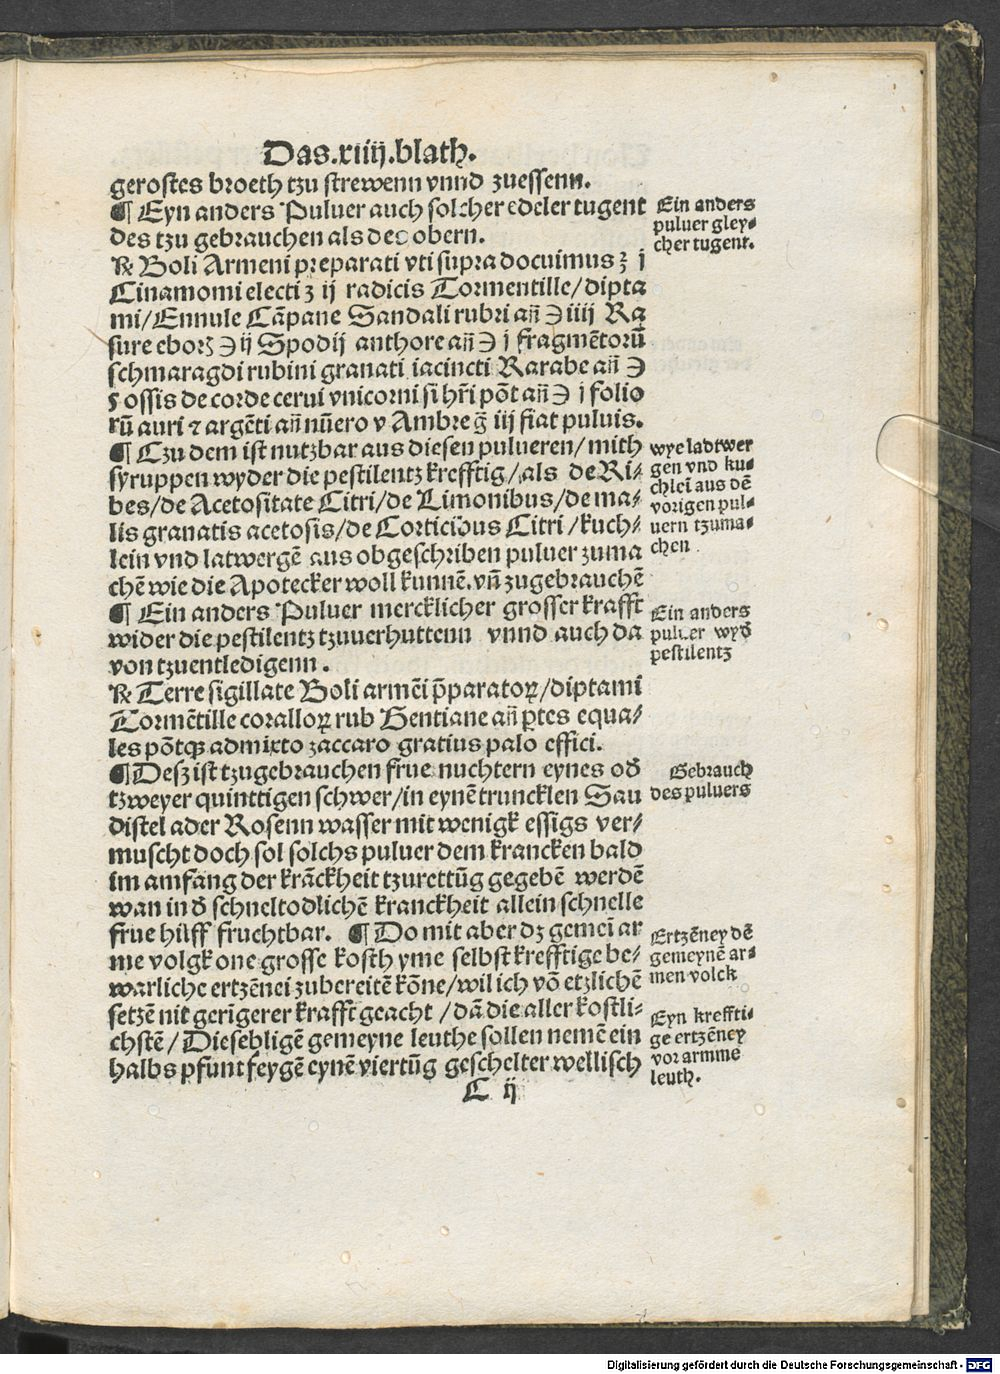 Das.xiiij.blath.
gerostes broeth tzu strewenn vnnd zuessenn.
¶ Eyn anders Puluer auch solcher edeler tugent
des tzu gebrauchen als des obern.
Ein anders
puluer gley⸗
cher tugent.
℞ Boli Armeni preparati vti supra docuimus ʒ j
Cinamomi electi ʒ ij radicis Tormentille/dipta
mi/Ennule Cāpane Sandali rubri añ ℈ iiij Ra
sure eborꝫ ℈ ij Spodij anthore añ ℈ j fragmētorū
schmaragdi rubini granati iacincti Karabe añ ℈
ſ ossis de corde cerui vnicorni si hr̄i pōt añ ℈ j folio
rū auri ⁊ argēti añ nūero v Ambre g̃ iij fiat puluis.
¶ Czu dem ist nutzbar aus diesen pulueren/ mith
syruppen wyder die pestilentz krefftig/als de Ri⸗
bes/de Acetositate Citri/de Limonibus/de ma⸗
lis granatis acetosis/de Corticibus Citri /kuch⸗
lein vnd latwergē aus obgeschriben puluer zuma
chē wie die Apotecker woll kunnē.vñ zugebrauchē
wye ladtwer
gen vnd ku⸗
chleī aus dē
vorigen pul⸗
uern tzuma⸗
chen
¶ Ein anders Puluer mercklicher grosser krafft
wider die pestilentz tzuuerhuttenn vnnd auch da
von tzuentledigenn.
Ein anders
puluer wyð
pestilentz
℞ Terre sigillate Boli armēi p̄paratoꝝ/diptami
Tormētille coralloꝝ rub Gentiane añ ꝑtes equa⸗
les pōtqꝫ admixto zaccaro gratius palo effici.
¶Desz ist tzugebrauchen frue nuchtern eynes oð
tzweyer quinttigen schwer/in eynē truncklen Sau
distel ader Rosenn wasser mit wenigk essigs ver⸗
muscht doch sol solchs puluer dem krancken bald
im amfang der krāckheit tzurettūg gegebē werdē
wan in ð schneltodlichē kranckheit allein schnelle
frue hilff fruchtbar. ¶ Do mit aber dz gemeī ar
me volgk one grosse kosth yme selbst krefftige be⸗
warliche ertzēnei zubereitē kōne/wil ich vō etzlichē
setzē nit gerigerer krafft geacht /dā die aller kostli⸗
chstē/ Diesebligē gemeyne leuthe sollen nemē ein
halbs pfunt feygē eynē viertūg geschelter wellisch
Gebrauch
des puluers
Ertzēney dē
gemeynē ar⸗
men volck
Eyn kreffti⸗
ge ertzēney
vor armme
leuth.
C ij
Digitalisierung gefördert durch die Deutsche Forschungsgemeinschaft - DFG